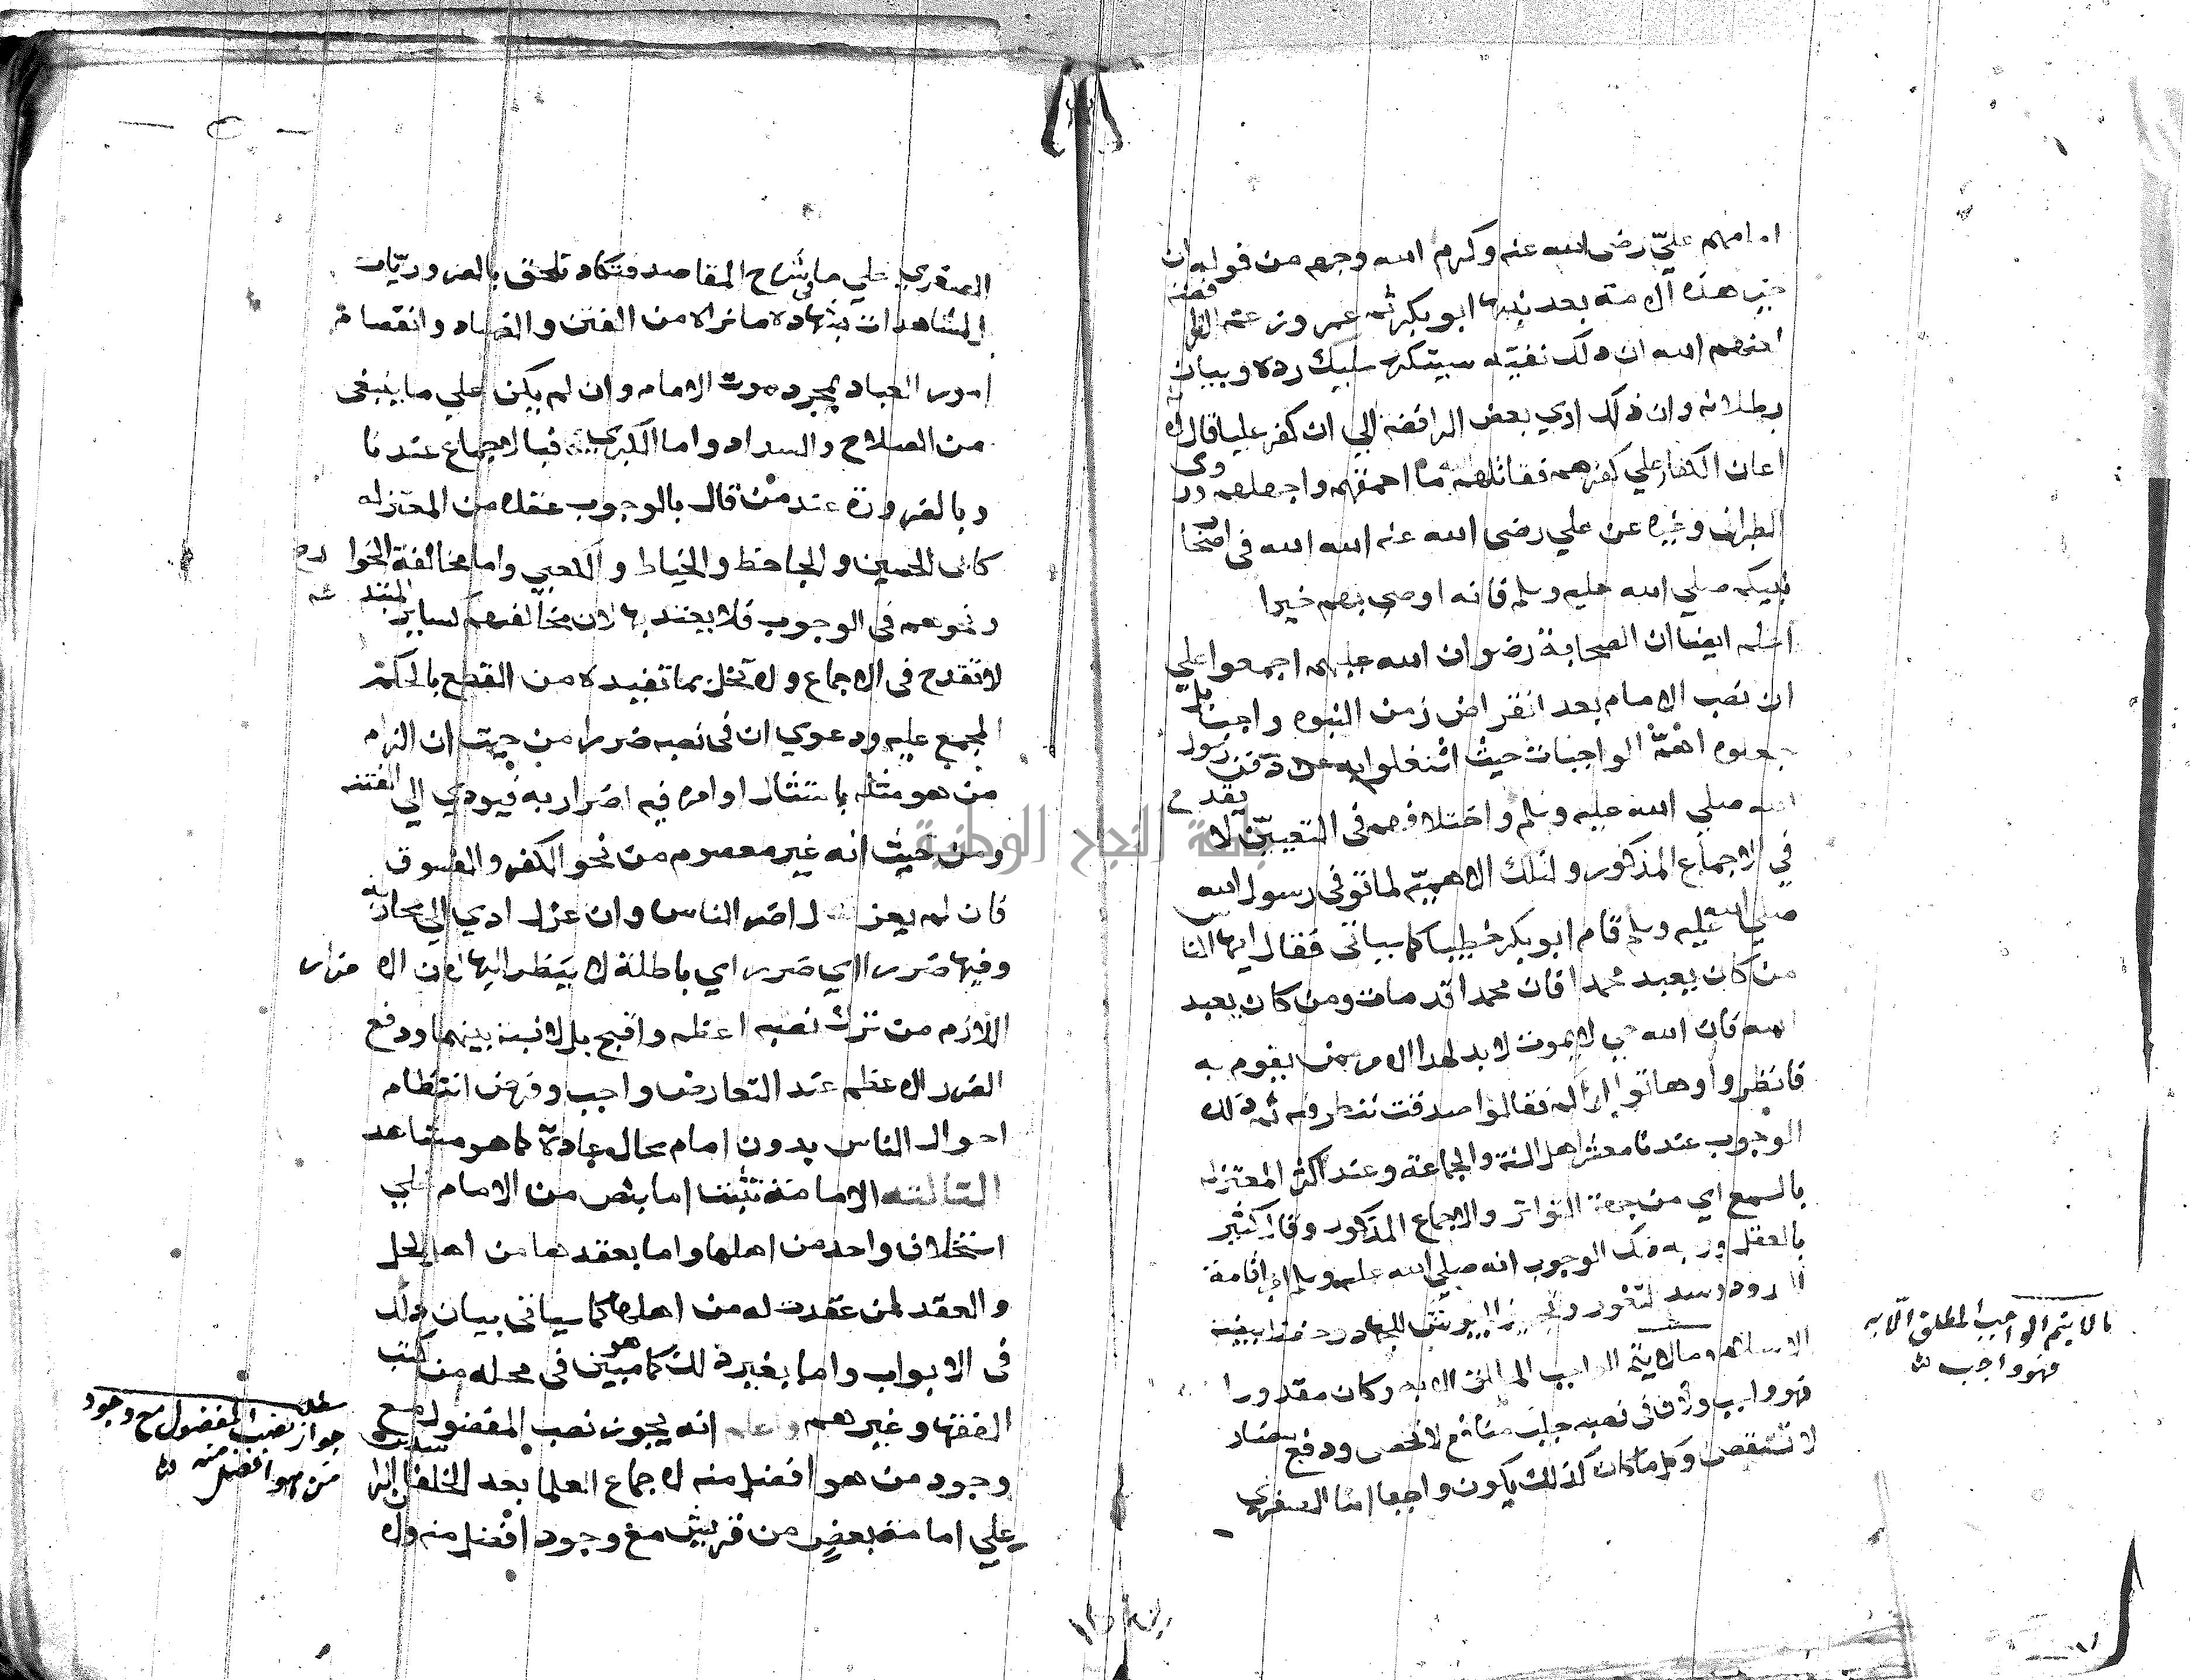 امامهم عليّ رضى الله عنه وكرم الله وجهه من قوله ان
خير هذه الامة بعد نبيها ابو بكر ثم عمر وزعمه الرافضة
لعنهم الله ان ذلك تقيّة سيتكرر عليك رده وبيان
بطلانه وان ذلك ادي بعض الرافضة الي ان كفر عليا قال لانه
اعان الكفار علي كفرهم فقاتلهم الله ما احمقهم واجهلهم وروى
الطبرانى وغيره عن علي رضى الله عنه الله الله فى اصحاب
نبيكم صلي الله عليه وسلم فانه اوصى بهم خيرا
اعلم ايضا ان الصحابة رضوان الله عليهم اجمعوا علي
ان نصب الامام بعد انقراض زمن النبوه واجب بل
جعلوه اهمّ الواجبات حيث اشتغلوا به عن دفن رسول
الله صلي الله عليه وسلم واختلافهم فى التعيين لا يقدح
في الاجماع المذكور ولتلك الاهميّة لما توفى رسول الله
صلي الله عليه وسلم قام ابو بكر خطيبا كما سياتى فقال ايها الناس
من كان يعبد محمدا فان محمدا قد مات ومن كان يعبد
الله فان الله حي لا يموت لا بد لهذا الامر ممن يقوم به
فانظروا وهاتوا اراكم فقالوا صدقت ننظر فيه ثم ذلك
الوجوب عندنا معشر اهل السنة والجماعة وعند اكثر المعتزله
بالسمع اي من جهة التواتر والاجماع المذكور وقال كثير
بالعقل ووجه ذلك الوجوب انه صلي الله عليه وسلم امر باقامة
الحدود وسد الثغور وتجهيز الجيوش للجهاد وحفظ بيضة
الاسلام وما لا يتم الواجب المطلق الا به وكان مقدورا
فهو واجب ولان فى نصبه جلب منافع لا تحصى ودفع مضار
لا تستقصى وكل ما كان كذلك يكون واجبا اما الصغرى
مالا يتم الواجب المطلق الا به
فهو واجب
الصغري علي ما فى شرح المقاصد فتكاد تلحق بالضروريّات
المشاهدات بشهادة ما نراه من الفتن والفساد وانفصام
امور العباد بمجرد موت الامام وان لم يكن علي ما ينبغى
من الصلاح والسداد واما الكبرى فبالاجماع عندنا
وبالضرورة عند من قال بالوجوب عقلا من المعتزله
كابى الحسين والجاحظ والخياط والكعبي واما مخالفة الخوارج
ونحوهم فى الوجوب فلا يعتد بها لان مخالفتهم كساير المبتدعة
لا تقدح فى الاجماع ولا تخل بما تفيده من القطع بالحكم
المجمع عليه ودعوي ان فى نصبه ضررا من حيث ان الزام
من هو مثله بامتثال اوامره فيه اضرار به فيودي الي الفتنة
ومن حيث انه غير معصوم من نحو الكفر والفسوق
فان لم يعزل اضر الناس وان عزل ادي الي محاربته
وفيها ضرر اي ضرر اي باطلة لا ينظر اليها لان الاضرار
اللازم من ترك نصبه اعظم واقبح بل لا نسبة بينهما ودفع
الضرر الاعظم عند التعارض واجب وفرض انتظام
احوال الناس بدون امام محال عادة كما هو مشاهد
الثالثه الامامة تثبت اما بنص من الامام علي
استخلاف واحد من اهلها واما بعقدها من اهل الحل
والعقد لمن عقدت له من اهلها كما سياتى بيان ذلك
فى الابواب واما بغير ذلك كما هو مبين فى محله من كتب
الفقها وغيرهم واعلم انه يجوز نصب المفضول مع
وجود من هو افضل منه لاجماع العلما بعد الخلفا الراشدين
علي امامة بعض من قريش مع وجود افضل منه ولان
مطلب
جواز نصب المفضول مع وجود
من هو افضل منه
جامعة النجاح الوطنية